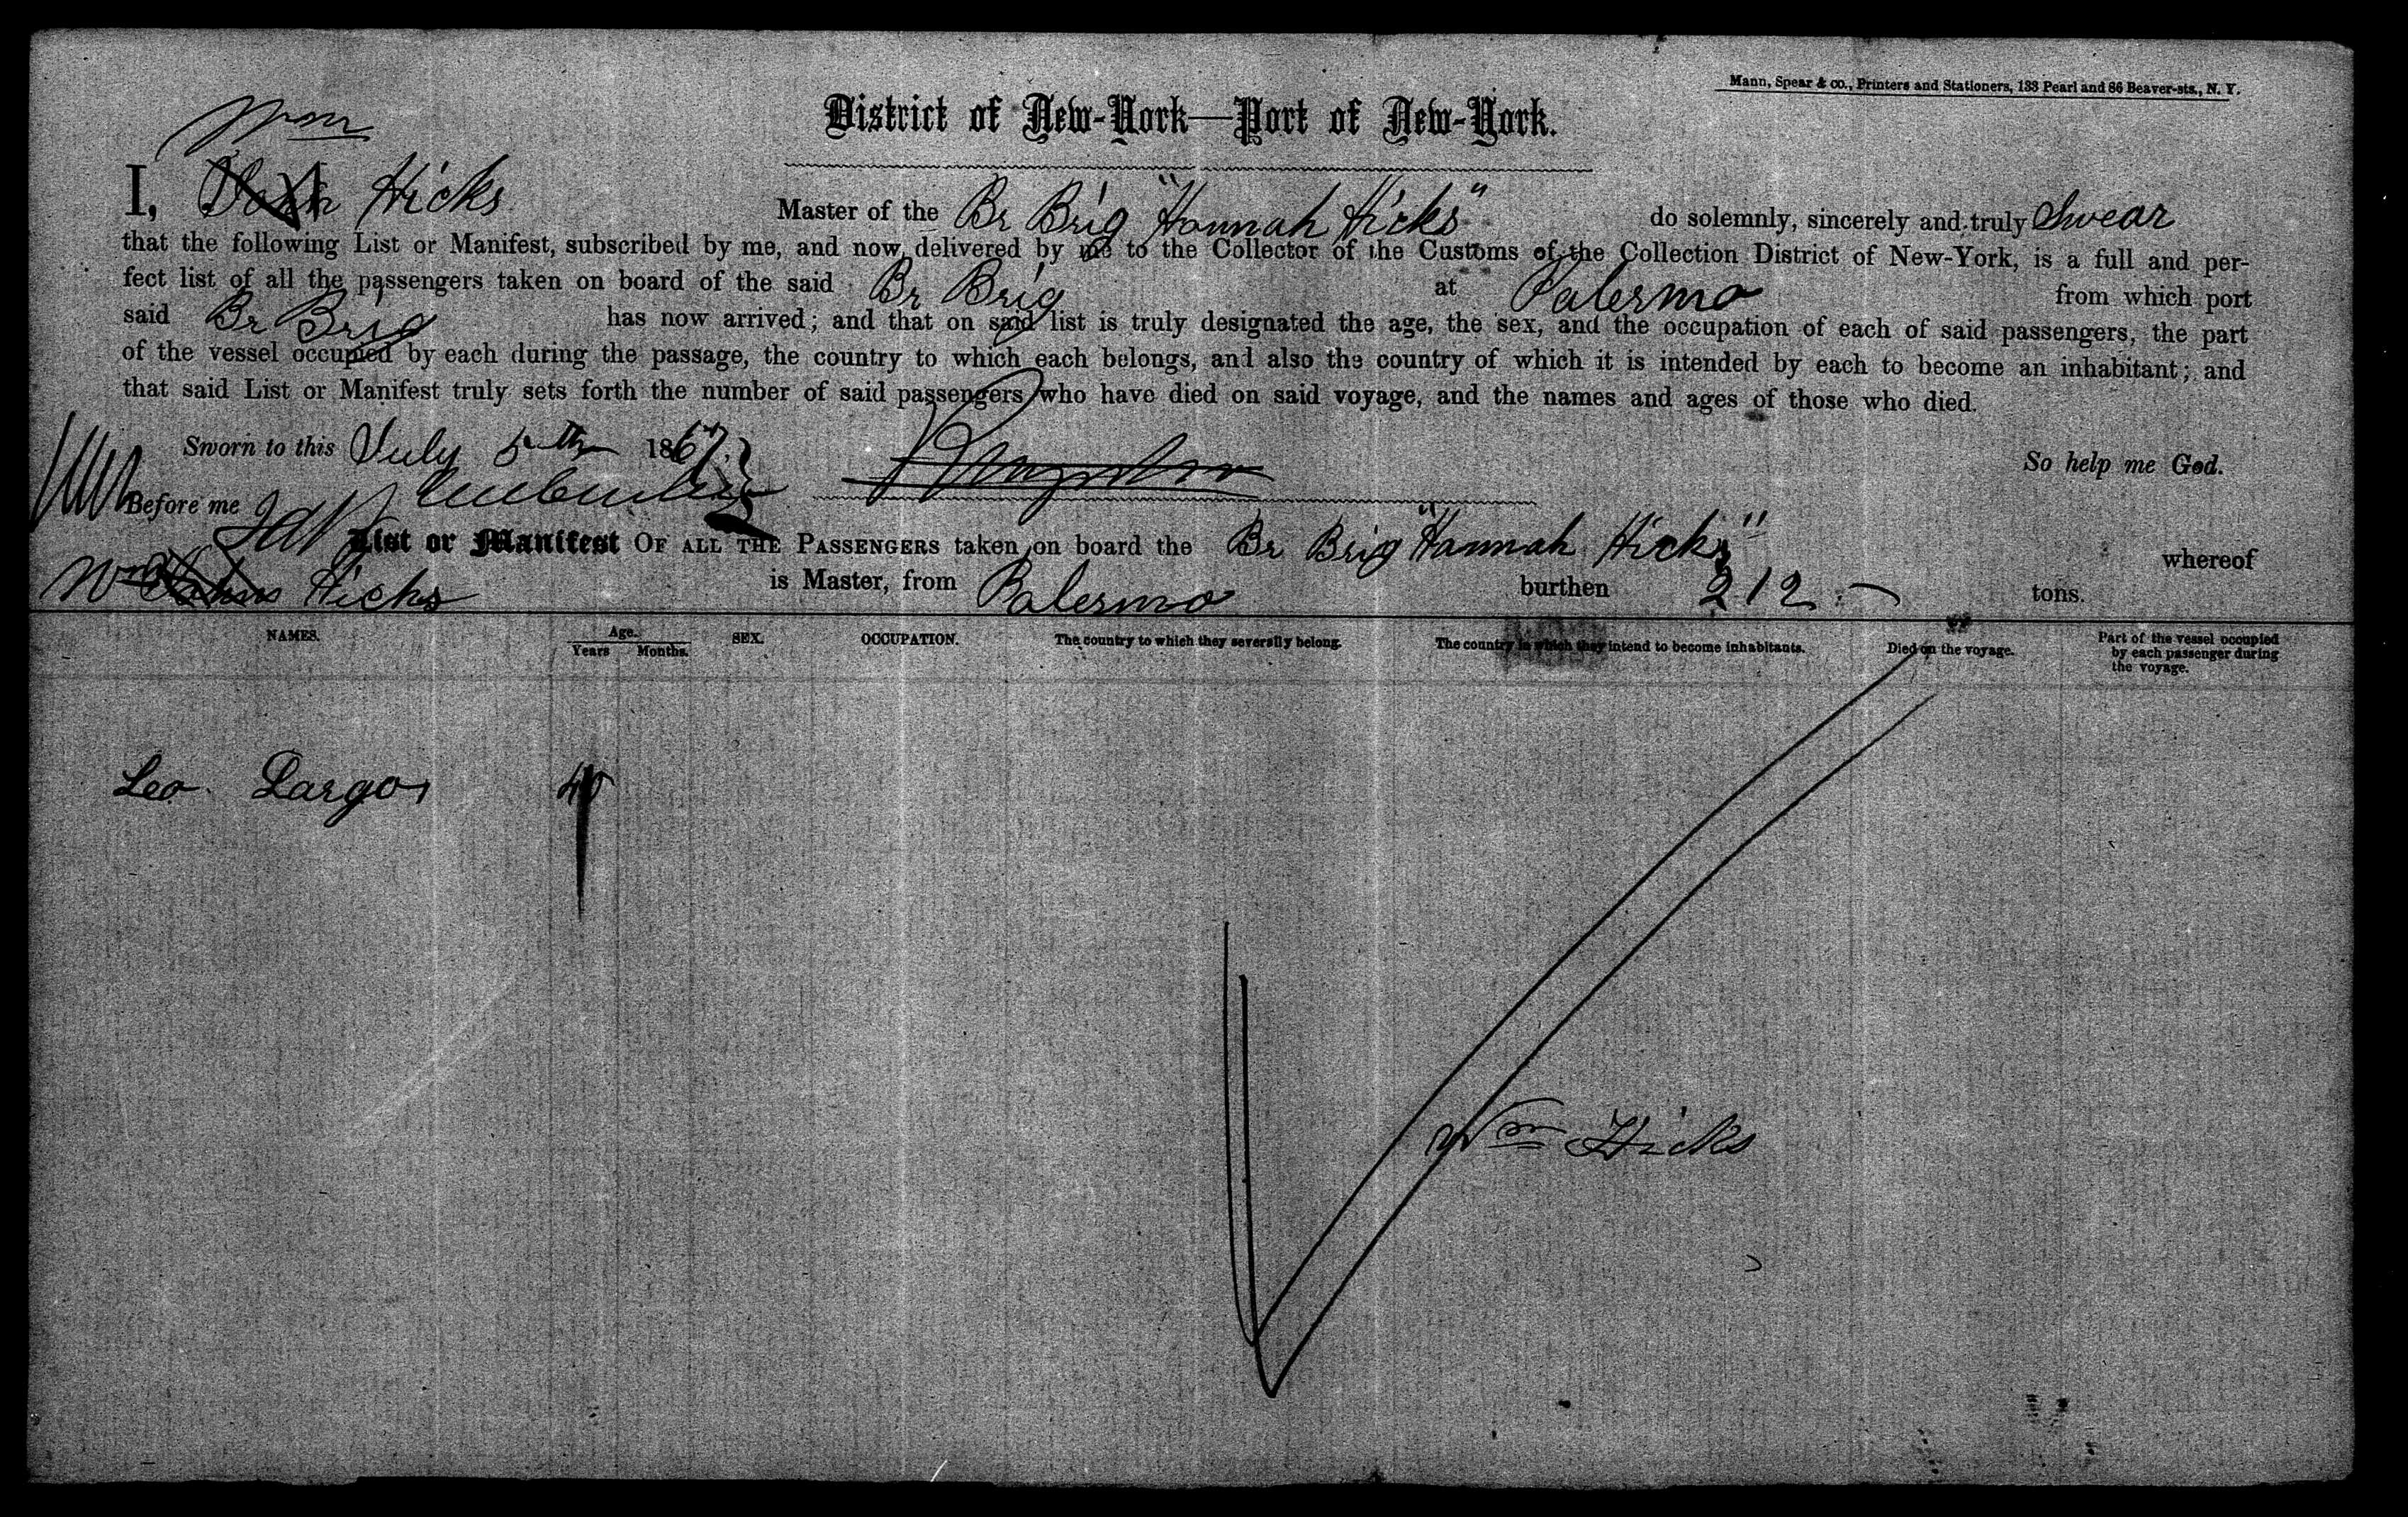 Mann, Spear & co., Printers and Stationers, 133 Pearl and 86 Beaver-sts., N. Y.
District of New-York—Port of New-York.
Wm
I, John Hicks Master of the Br Brig "Hannah Hicks" do solemnly, sincerely and truly Swear
that the following List or Manifest, subscribed by me, and now delivered by me to the Collector of the Customs of the Collection District of New-York, is a full and per-
fect list of all the passengers taken on board of the said Br Brig at Palermo from which port
said Br Brig has now arrived; and that on said list is truly designated the age, the sex, and the occupation of each of said passengers, the part
of the vessel occupied by each during the passage, the country to which each belongs, and also the country of which it is intended by each to become an inhabitant; and
that said List or Manifest truly sets forth the number of said passengers who have died on said voyage, and the names and ages of those who died.
Sworn to this July 5th 1867 So help me God.
Before me
List or Manifest OF ALL THE PASSENGERS taken on board the Br Brig "Hannah Hicks" whereof
Wm John Hicks is Master, from Palermo burthen 212 tons.
NAMES. Age. Years Months. SEX. OCCUPATION. The country to which they severally belong. The country in which they intend to become inhabitants. Died on the voyage. Part of the vessel occupied by each passenger during the voyage.
Leo Largo 40
Wm Hicks